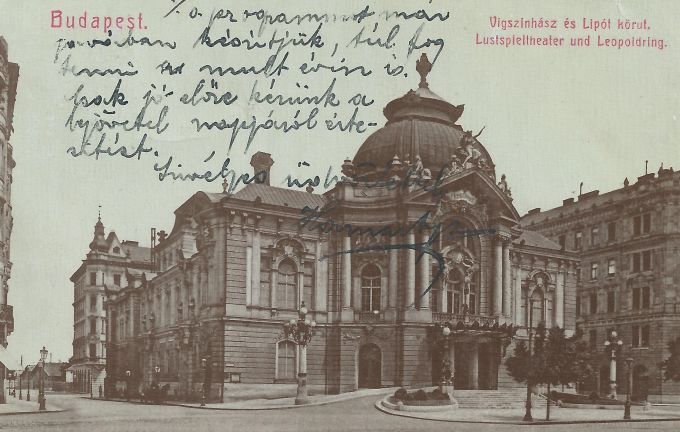 Budapest.
Vígszinház és Lipót körut.
Lustspieltheater und Leopoldring.
a programmot már
javában készítjük, túl fog
tenni az mult évin is.
Csak jó előre kérünk a
bejövetel napjáról érte-
sitést.
Szívélyes üdvözlettel